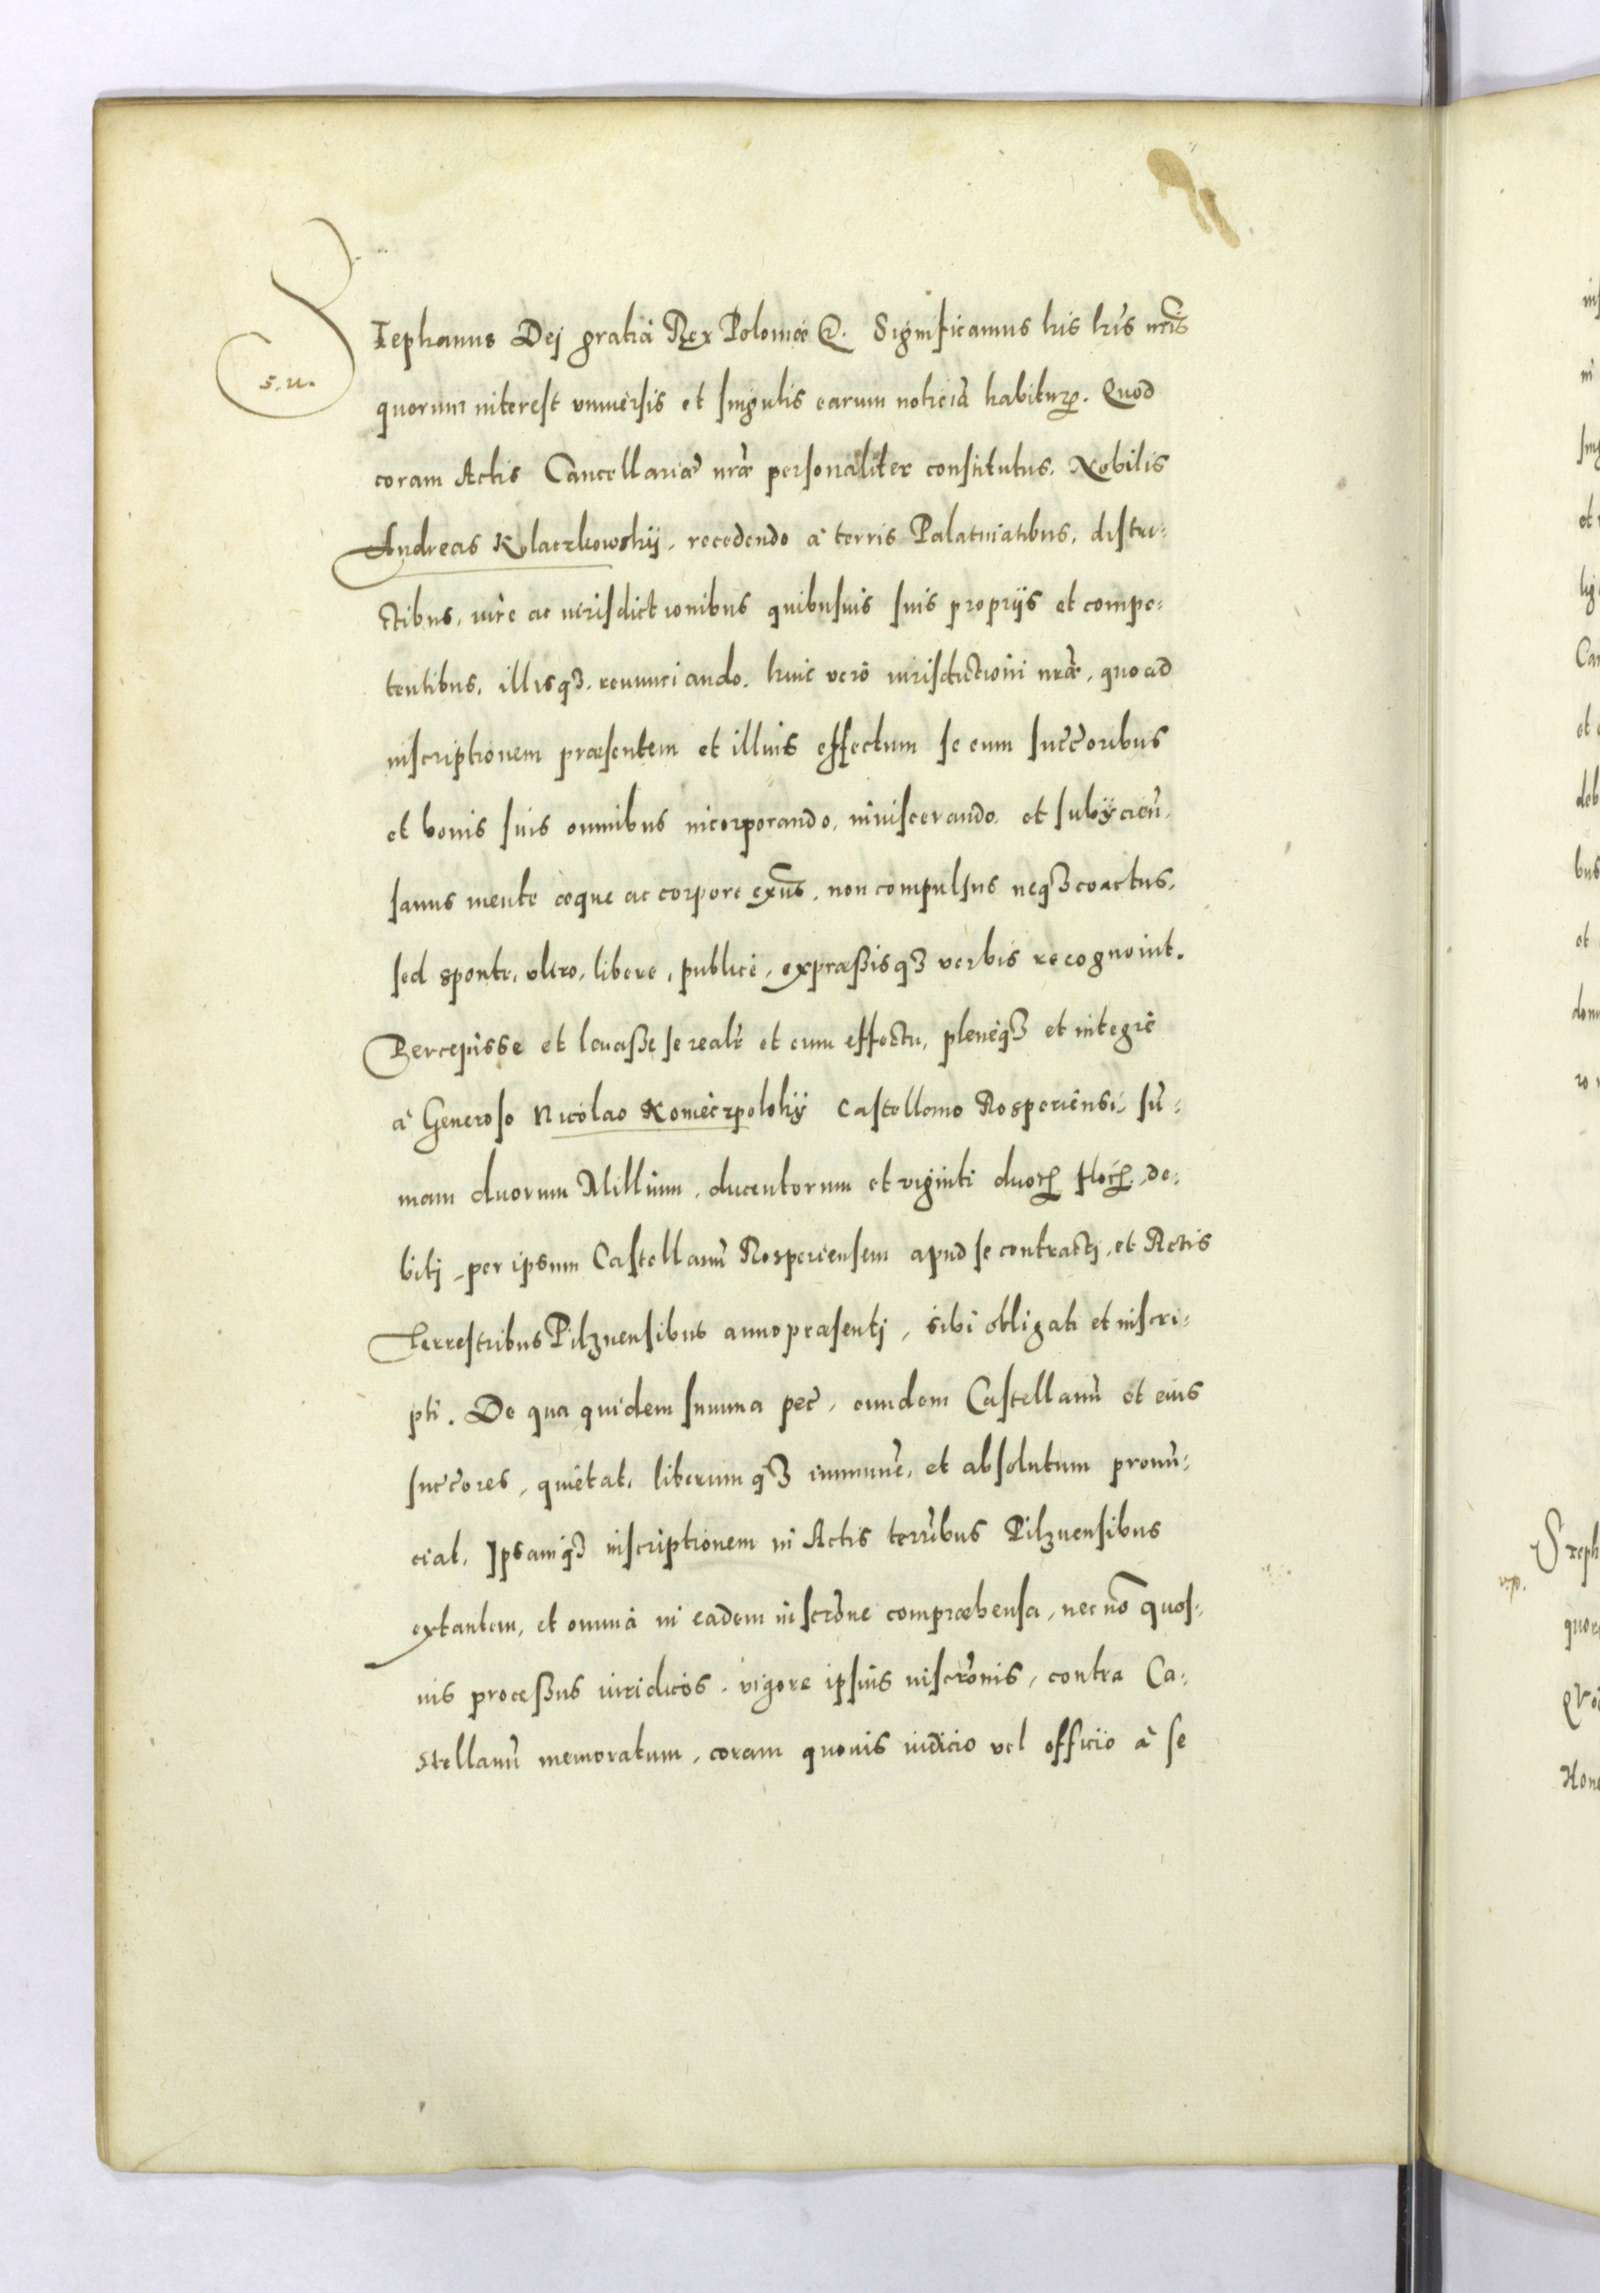 Stephanus Dej gratia Rex Poloniæ &. Significamus his lris nris
s. u.
quorum interest vniuersis et singulis earum noticiā habituro. Quod
coram Actis Cancellariæ nræ personaliter constitutus. Nobilis
Andreas Kolaczkowskÿ, recedendo à terris Palatinatibus, distri=
ctibus, iure ac iurisdictionibus quibusuis suis proprÿs et compe=
tentibus, illisq3 renunciando. huic verò iurisdictioni nræ, quoad
inscriptionem præsentem et illius effectum se cum succ̃oribus
et bonis suis omnibus incorporando, inuiscerando, et subÿcieñ,
sanus mente æque ac corpore exñs, non compulsus neq3 coactus,
sed sponte, vltro, libere, publicè, expræßisq3 verbis recognouit.
Percepisse et leuaße se realr̃ et cum effectu, plenèq3 et integrè
à Generoso Nicolao Konieczpolskÿ Castellano Rosperiensi, sum̄=
mam duorum Millium, ducentorum et viginti duor̃ flor̃, de=
bitj, per ipsum Castellanū Rosperiensem apud se contractj, et Actis
Terrestribus Pilznensibus anno præsentj, sibi obligati et inscri=
pti. De qua quidem summa pec̃, eundem Castellanū et eius
succ̃ores, quietat, liberum q3 immunē, et absolutum pronū=
ciat, Ipsamq3 inscriptionem in Actis terr̃ibus Pilznensibus
extantem, et omnia in eadem inscrõne compræhensa, nec nō quos=
uis proceßus iuridicos, vigore ipsius inscrõnis, contra Ca=
stellanū memoratum, coram quouis iudicio vel officio à se